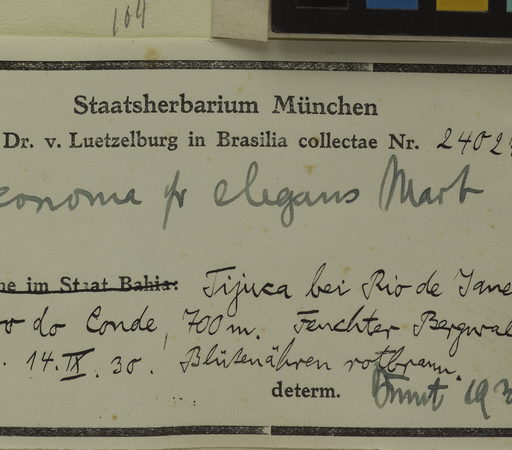 104
Staatsherbarium München
Dr. v. Luetzelburg in Brasilia collectae Nr. 2402
conoma fr elegans Mart
ne im Staat Bahia: Tijuca bei Rio de Jane
o do Conde, 700 m. Feuchter Bergwal
. 14.IX.30. Blütenähren rotbraun.
determ. 19